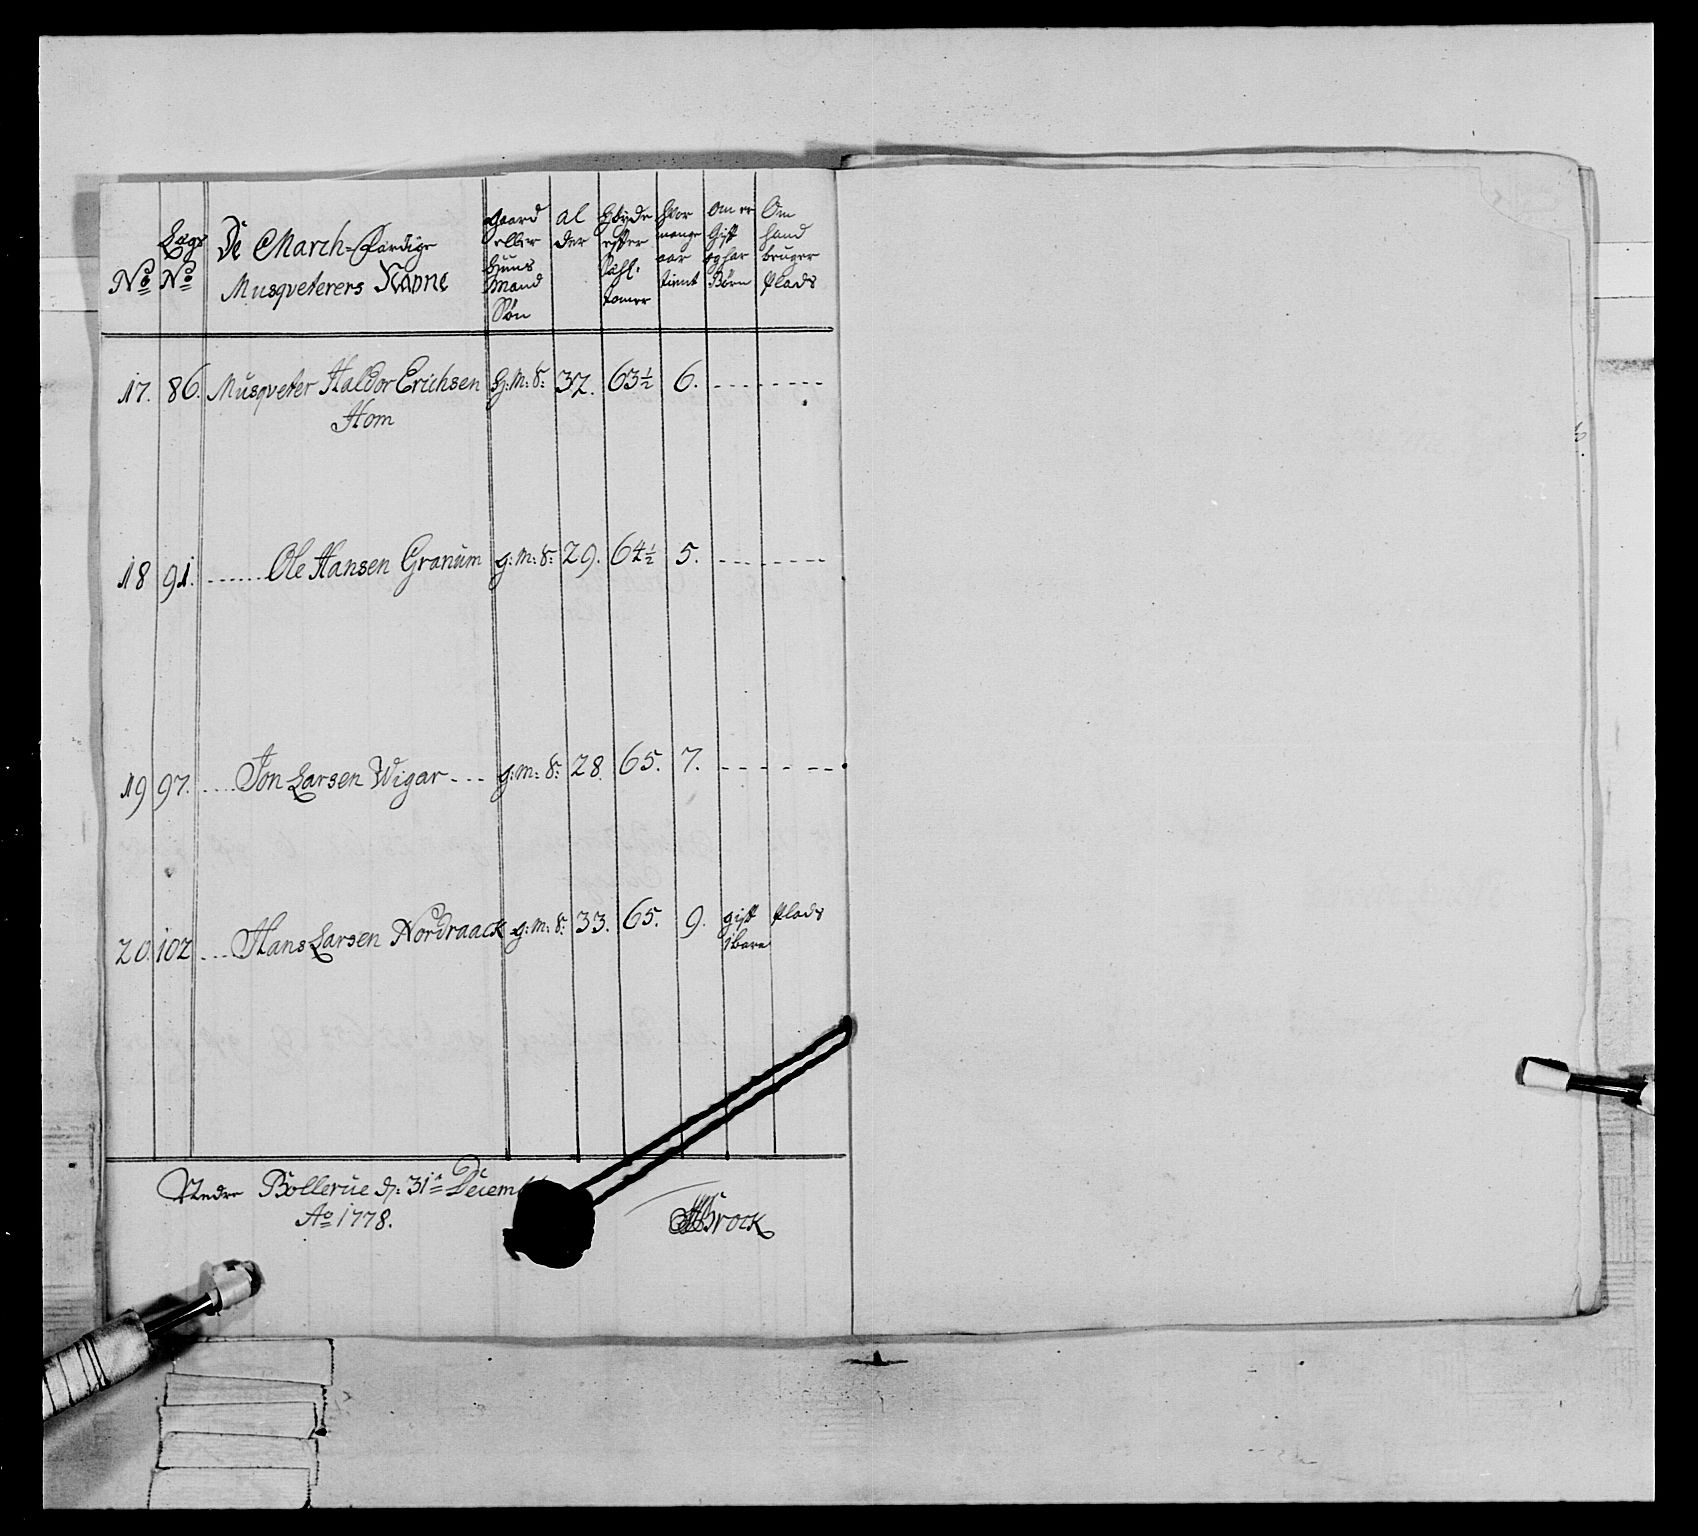 No Lægs No De March-Færdige Musqueterers Navne Gaard eller Huus Mand Søn Al der Høyde efter Sahl. tomer Hvor mange aar tient Om er Gift og har Børn Om hand bruger Plads
17. 86. Musqueter Haldor Erichsen G: M: S: 32. 63½ 6. - - - - - - - -
Hom
18 91. ...... Ole Hansen Granum g: M: S: 29. 64½ 5. - - - - - - - -
19 97. .... Jon Larsen Wigar - - - g: M: S: 28. 65. 7. - - - - - - -
20. 102 ... Hans Larsen Nordraack g: M: S: 33. 65. 9. gift Plads
1 barn
Nedre Bollerue d: 31te Decem
Ao 1778. Brock